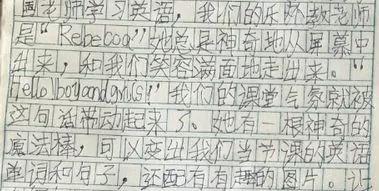 国老师学习英语，我们的乐外教老师
是“Rebecca”她总是神奇地从屏幕中
出来，和我们笑容满面地走出来。“
hello！boyandgirls！”我们的课堂气氛就被
这句话带动起来了。她有一根神奇的
魔法棒，可以变出我们当节课的英语
单词和句子，还配有有趣的图片。让